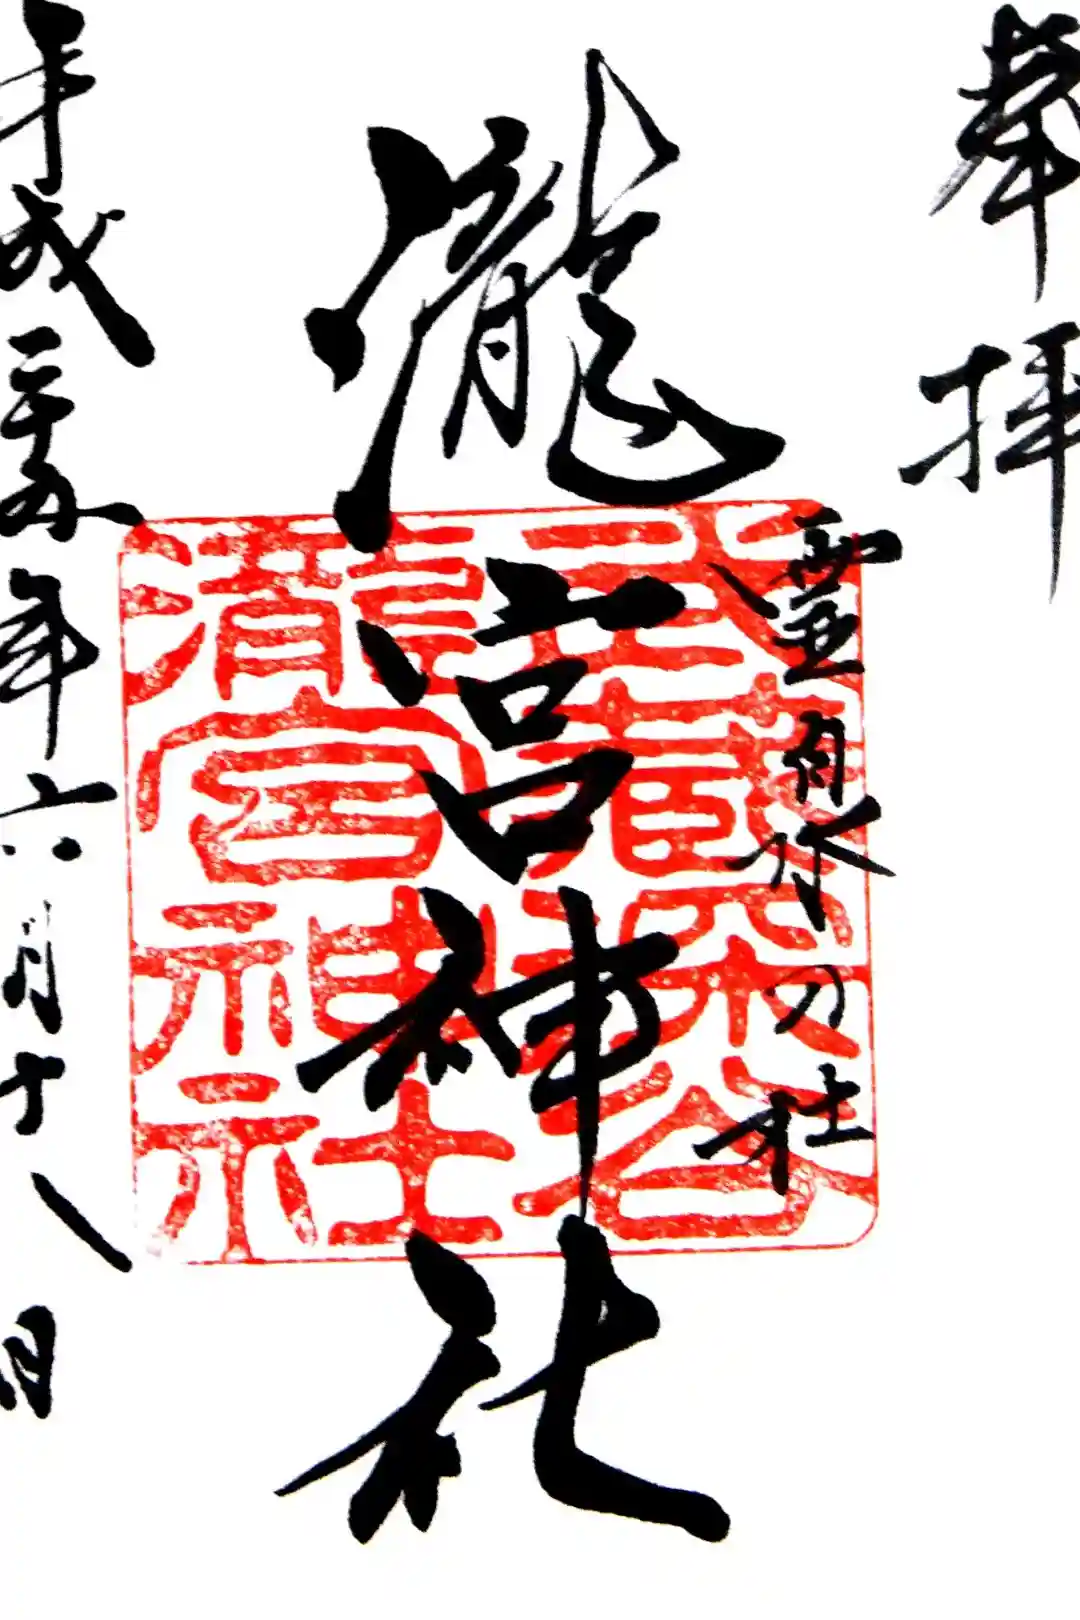 奉拝
霊泉乃杜
瀧宮神社
武蔵深谷
瀧宮神社
平成二十五年六月十八日